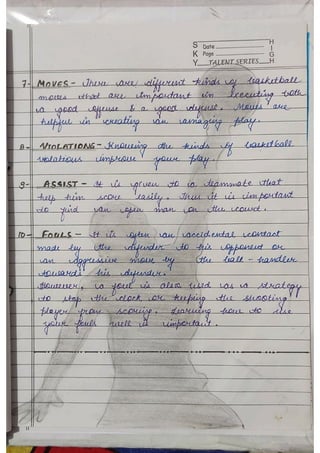 S K Y
Date
Page
TALENT SERIES
H I G H
7- MOVES - There are different kinds of basketball
moves that are important in executing both
a good offense & a good defense. Moves are
helpful in creating an amazing play.
8- VIOLATIONS - Knowing the kinds of basketball
violations improve your play.
9- ASSIST - It is given to a teammate that
help him score easily. Thus it is important
to find an open man on the crowd.
10- FOULS - It is often an accidental contact
made by the defender to his opponent or
an aggressive move by the ball - handler
towards his defender.
However, a foul is also used as a strategy
to stop the clock or keeping the shooting
player from scoring. Learning how to use
your fouls well is important.